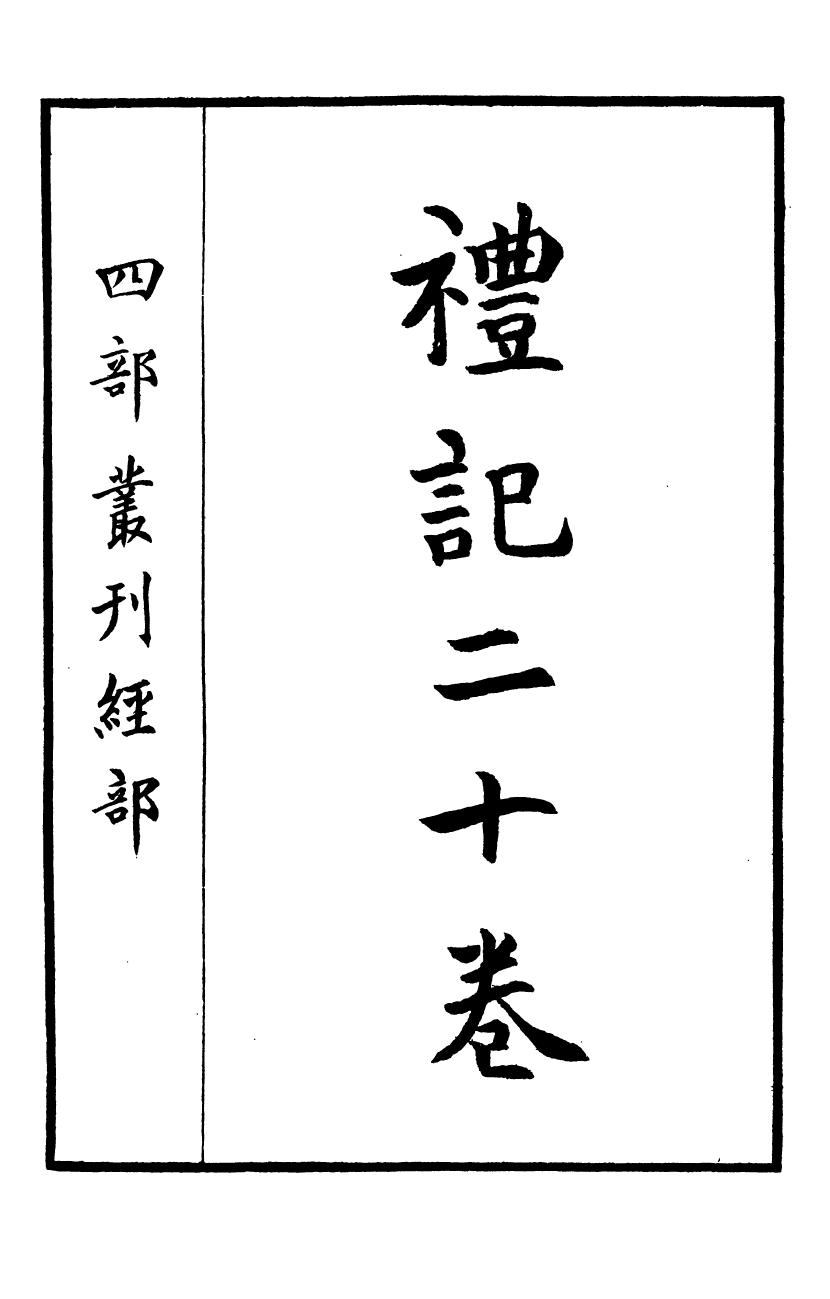 禮記二十卷
四部叢刊經部